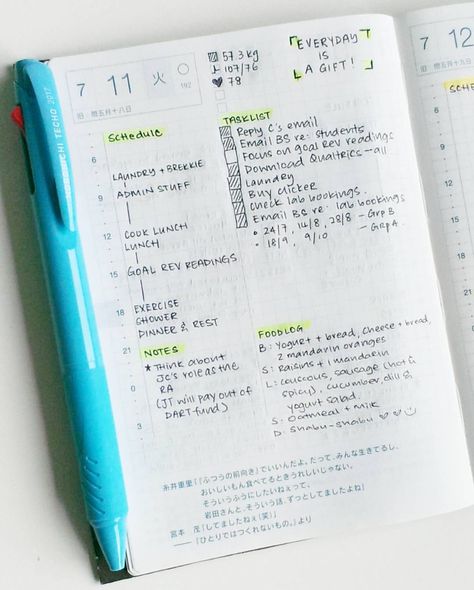 HOBONICHI TECHO 2017
7 11 火
旧 閏五月十八日
192
57.3 kg
107/76
78
EVERYDAY
IS
A GIFT!
7 12
旧
SCHEDULE
6
LAUNDRY + BREKKIE
9
ADMIN STUFF
12
COOK LUNCH
LUNCH
15
GOAL REV READINGS
18
EXERCISE
SHOWER
DINNER & REST
21
TASKLIST
Reply C's email
Email BS re: students
Focus on goal rev readings
Download Qualtrics - all
Laundry
Buy clicker
Check lab bookings.
Email BS re: lab bookings
• 24/7, 14/8, 28/8 - Grp B
• 18/9, 9/10 - Grp A
NOTES
★ Think about
JC's role as the
0
RA
(JT will pay out of
DART-fund)
3
FOODLOG
B: Yogurt + bread, cheese + bread,
2 mandarin oranges
S: Raisins + 1 mandarin
L: couscous, sausage (hot &
spicy), cucumber, dill &
yogurt salad.
S: Oatmeal + milk
D: Shabu-shabu
糸井重里「『ふつうの前向き』でいいんだよ。だって、みんな生きてるし、
おいしいもん食べてるときうれしいじゃない。
そういうふうにしたいねぇって、
岩田さんと、そういう話、ずっとしてましたよね」
宮本 茂「してましたねぇ(笑)」
――『ひとりではつくれないもの。』より
6
9
12
15
18
21
0
3